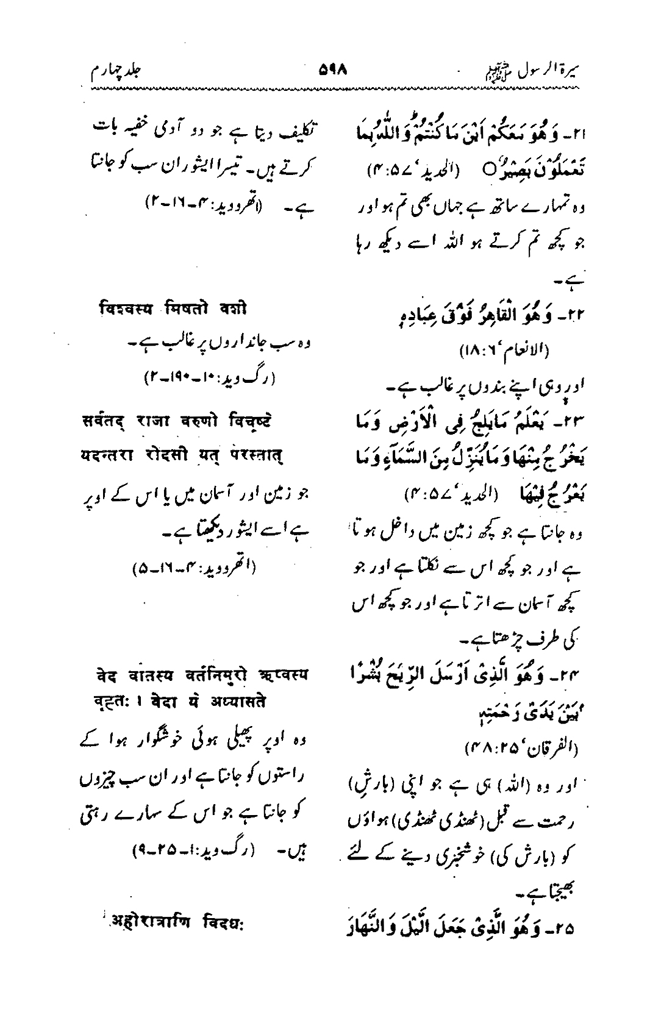 سیرۃ الرسول ﷺ ۵۹۸ جلد چہارم
۲۱۔ وَهُوَ مَعَكُمْ اَيْنَ مَا كُنْتُمْ وَاللّٰهُ بِمَا
تَعْمَلُوْنَ بَصِيْرٌ○ (الحدید، ۵۷:۴)
وہ تمہارے ساتھ ہے جہاں بھی تم ہو اور
جو کچھ تم کرتے ہو اللہ اسے دیکھ رہا
ہے۔
۲۲۔ وَهُوَ الْقَاهِرُ فَوْقَ عِبَادِهٖ
(الانعام، ۶:۱۸)
اور وہی اپنے بندوں پر غالب ہے۔
۲۳۔ يَعْلَمُ مَا يَلِجُ فِى الْاَرْضِ وَمَا
يَخْرُجُ مِنْهَا وَمَا يَنْزِلُ مِنَ السَّمَآءِ وَمَا
يَعْرُجُ فِيْهَا (الحدید، ۵۷:۴)
وہ جانتا ہے جو کچھ زمین میں داخل ہوتا
ہے اور جو کچھ اس سے نکلتا ہے اور جو
کچھ آسمان سے اترتا ہے اور جو کچھ اس
کی طرف چڑھتا ہے۔
۲۴۔ وَهُوَ الَّذِىْ اَرْسَلَ الرِّيٰحَ بُشْرًا
بَيْنَ يَدَىْ رَحْمَتِهٖ
(الفرقان، ۲۵:۴۸)
اور وہ (اللہ) ہی ہے جو اپنی (بارش)
رحمت سے قبل (ٹھنڈی ٹھنڈی) ہواؤں
کو (بارش کی) خوشخبری دینے کے لئے
بھیجتا ہے۔
۲۵۔ وَهُوَ الَّذِىْ جَعَلَ الَّيْلَ وَالنَّهَارَ
تکلیف دیتا ہے جو دو آدمی خفیہ بات
کرتے ہیں۔ تیسرا ایشور ان سب کو جانتا
ہے۔ (اتھروید:۴-۱۶-۲)
विश्वस्य मिषतो वशी
وہ سب جانداروں پر غالب ہے۔
(رگ وید:۱۰-۱۹۰-۲)
सर्वतद् राजा वरुणो विचष्टे
यदन्तरा रोदसी यत् परस्तात्
جو زمین اور آسمان میں یا اس کے اوپر
ہے اسے ایشور دیکھتا ہے۔
(اتھروید:۴-۱۶-۵)
वेद वातस्य वर्तनिमुरो ऋष्वस्य
वृहतः । वेदा ये अध्यासते
وہ اوپر پھیلی ہوئی خوشگوار ہوا کے
راستوں کو جانتا ہے اور ان سب چیزوں
کو جانتا ہے جو اس کے سہارے رہتی
ہیں۔ (رگ وید:۱-۲۵-۹)
अहोरात्राणि विदधः